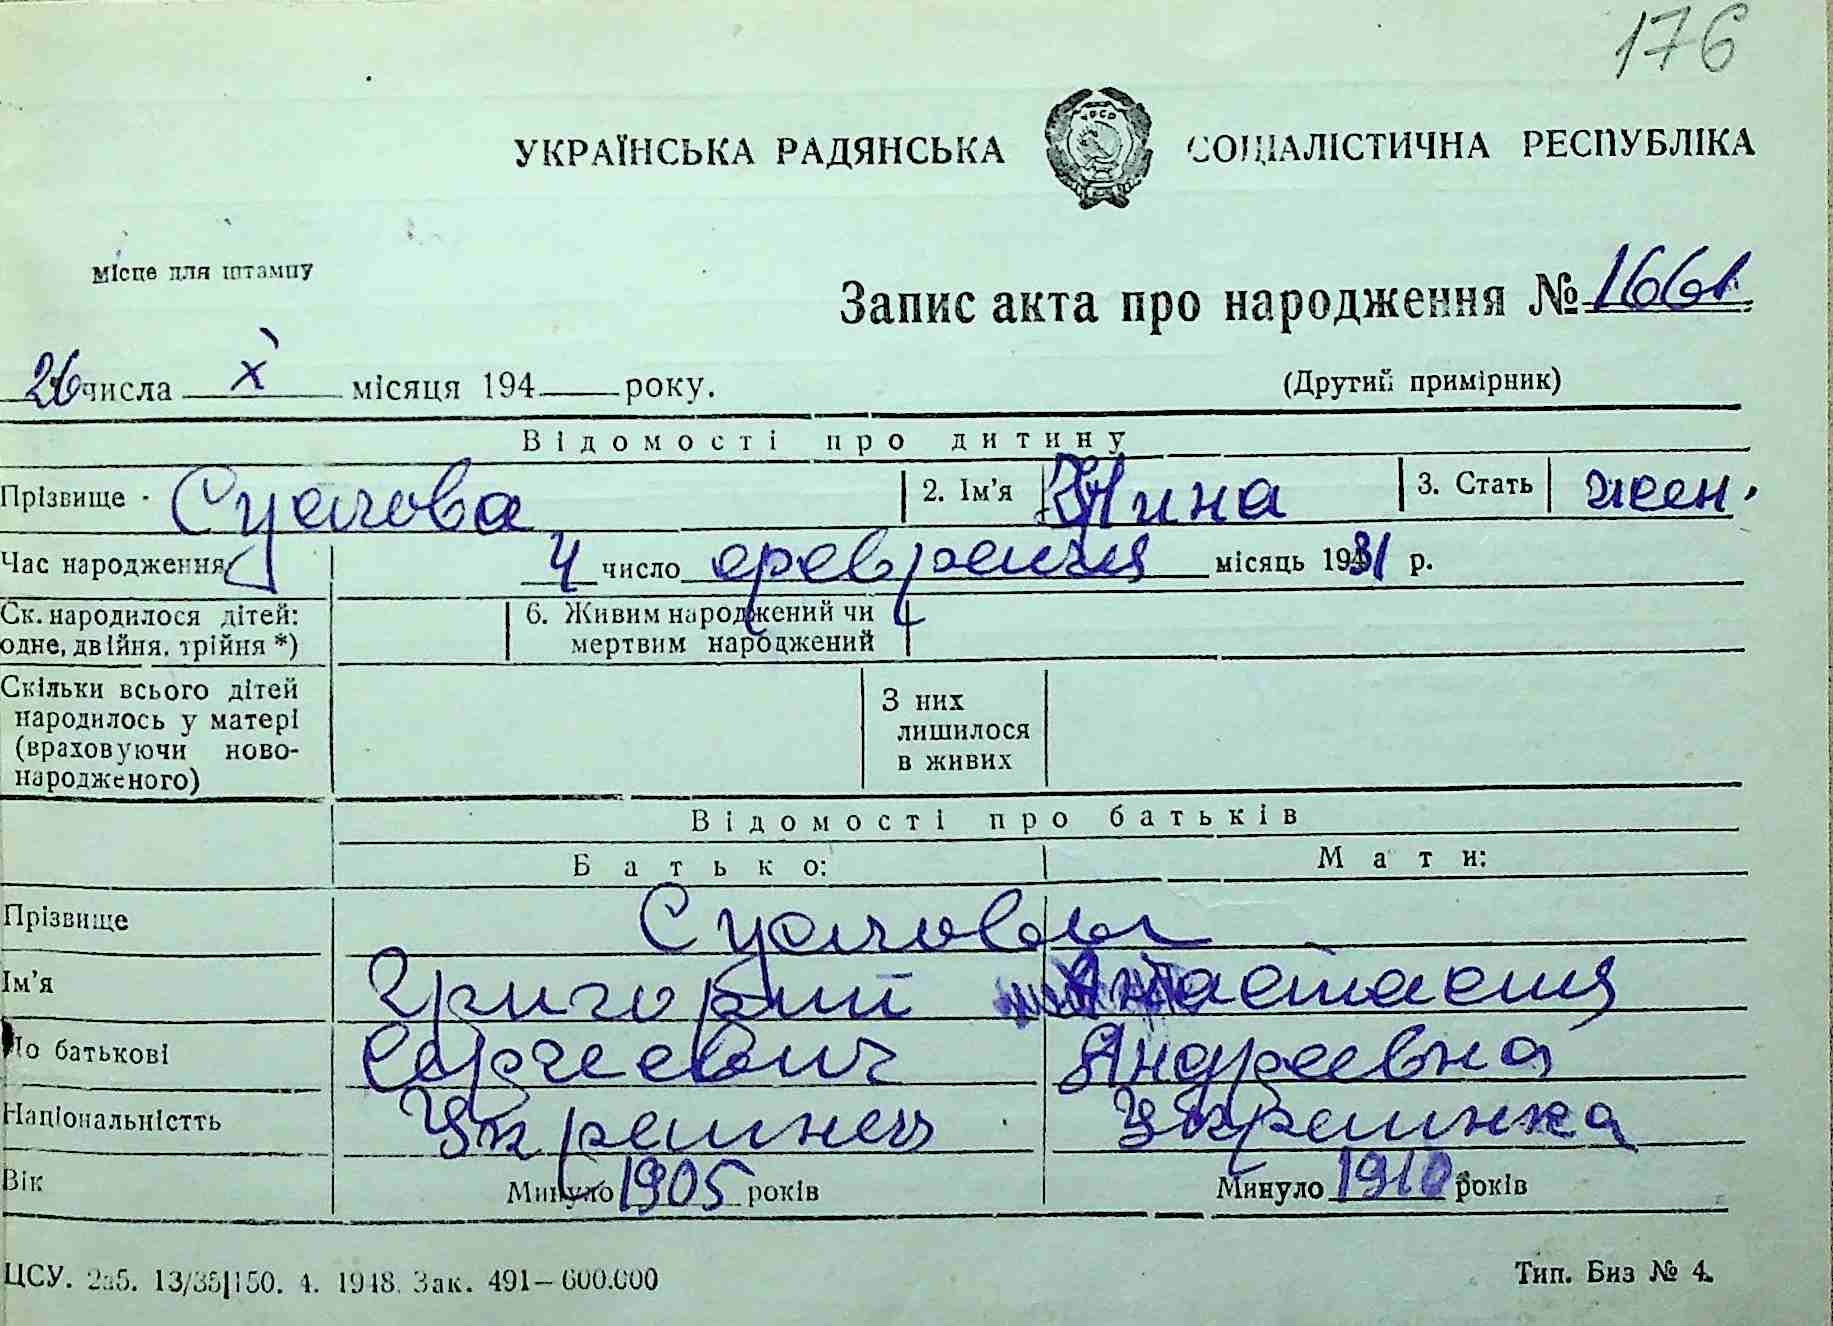 176
УКРАЇНСЬКА РАДЯНСЬКА СОЦІАЛІСТИЧНА РЕСПУБЛІКА
Місце для штампу
Запис акта про народження №
26 числа X місяця 194 року.
(Другий примірник)
Відомості про дитину
Прізвище 2. Ім'я Нина 3. Стать жен.
Час народження 4 число февраля місяць 1931 р.
Ск. народилося дітей: одне, двійня, трійня *)
6. Живим народжений чи мертвим народжений
Скільки всього дітей народилось у матері (враховуючи новонародженого)
З них лишилося в живих
Відомості про батьків
Батько: Мати:
Прізвище
Ім'я Григорий Анастасия
По батькові Сергеевич Андреевна
Національністть Украинец Украинка
Вік Минуло 1905 років Минуло 1910 років
ЦСУ. 13/35|150. 4. 1948. Зак. 491—600.000
Тип. Биз № 4.